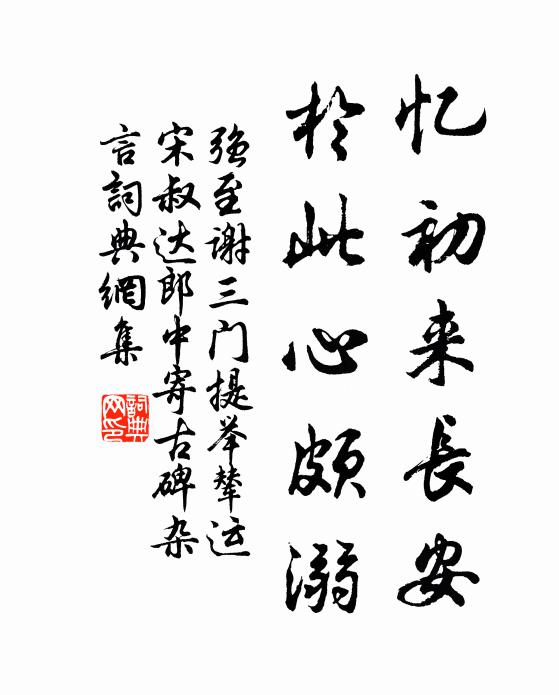 忆初来长安
於此心颇溺
强至谢三门提举辇运
宋叔达郎中寄古碑杂
言詞典網集
詞典网印